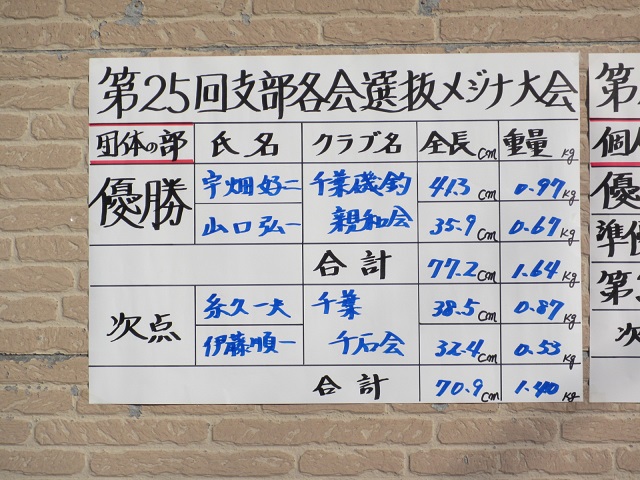 第25回支部各会選抜メジナ大会
団体の部 氏名 クラブ名 全長cm 重量kg
優勝 宇畑好二 千葉磯釣 41.3cm 0.97kg
山口弘一 親和会 35.9cm 0.67kg
合計 77.2cm 1.64kg
次点 糸久一夫 千葉 38.5cm 0.87kg
伊藤順一 千石会 32.4cm 0.53kg
合計 70.9cm 1.40kg
第
個人
優
準優
第
次